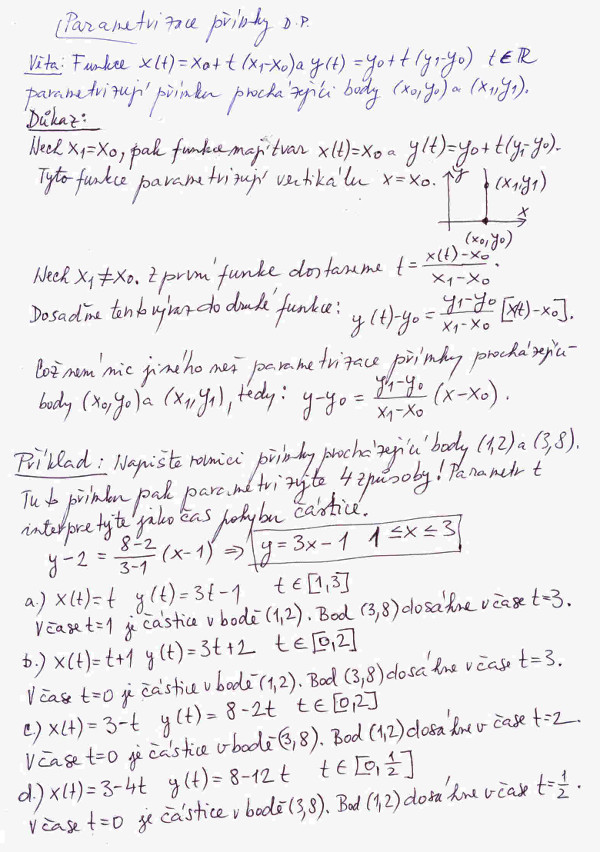 Parametrizace přímky D.P.
Věta: Funkce x(t) = x0 + t (x1-x0) a y(t) = y0 + t (y1-y0) t ∈ R
parametrizují přímku procházející body (x0,y0) a (x1,y1).
Důkaz:
Nech x1=x0, pak funkce mají tvar x(t)=x0 a y(t)=y0+t(y1-y0).
Tyto funkce parametrizují vertikálu x=x0.
y
(x1,y1)
x
(x0,y0)
Nech x1≠x0. Z první funkce dostaneme t = (x(t)-x0)/(x1-x0).
Dosaďme tento výraz do druhé funkce: y(t)-y0 = (y1-y0)/(x1-x0) [x(t)-x0].
Což není nic jiného než parametrizace přímky procházející
body (x0,y0) a (x1,y1), tedy: y-y0 = (y1-y0)/(x1-x0) (x-x0).
Příklad: Napište rovnici přímky procházející body (1,2) a (3,8).
Tuto přímku pak parametrizujte 4 způsoby! Parametr t
interpretujte jako čas pohybu částice.
y-2 = (8-2)/(3-1) (x-1) ⇒ y=3x-1 1≤x≤3
a.) x(t)=t y(t)=3t-1 t∈[1,3]
V čase t=1 je částice v bodě (1,2). Bod (3,8) dosáhne v čase t=3.
b.) x(t)=t+1 y(t)=3t+2 t∈[0,2]
V čase t=0 je částice v bodě (1,2). Bod (3,8) dosáhne v čase t=3.
c.) x(t)=3-t y(t)=8-2t t∈[0,2]
V čase t=0 je částice v bodě (3,8). Bod (1,2) dosáhne v čase t=2.
d.) x(t)=3-4t y(t)=8-12t t∈[0,1/2]
V čase t=0 je částice v bodě (3,8). Bod (1,2) dosáhne v čase t=1/2.